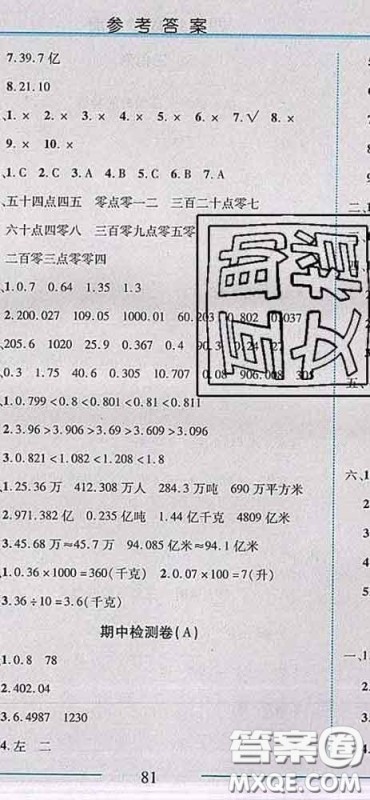 参考答案
7.39.7亿
8.21.10
、1.× 2.× 3.× 4.× 5.× 6.× 7.√ 8.×
9.× 10.×
、1.C 2.C 3.A 4.B 5.C 6.A 7.A
、五十四点四五 零点零一二 三百二十点零七
六十点四零八 三百零九点零五零
二百零三点零零四
、1.0.7 0.64 1.35 1.3
2.200.027 109.08 1000 60.203
205.206 1020 25.9 0.367 0.4
、0.3 1.75 40.6 0.305 10.707 0.08
、1.0.799<0.8<0.801<0.81
2.3.96>3.906>3.69>3.609>3.096
3.0.821<1.082<1.208<2.18
、1.25.36万 412.308万人 284.3万吨 690万平方米
2.971.382亿 0.235亿吨 1.44亿千克 4809亿米
3.45.58万≈45.7万 94.085亿米≈94.1亿米
、1.0.36×1000=360(千克) 2.0.07×100=7(升)
3.36÷10=3.6(千克)
期中检测卷(A)
、1.0.8 78
2.402.04
3.6.4987 1230
4.左 二
81
五、
六、1
一、1
互助文档
答案卷
MXQE.COM